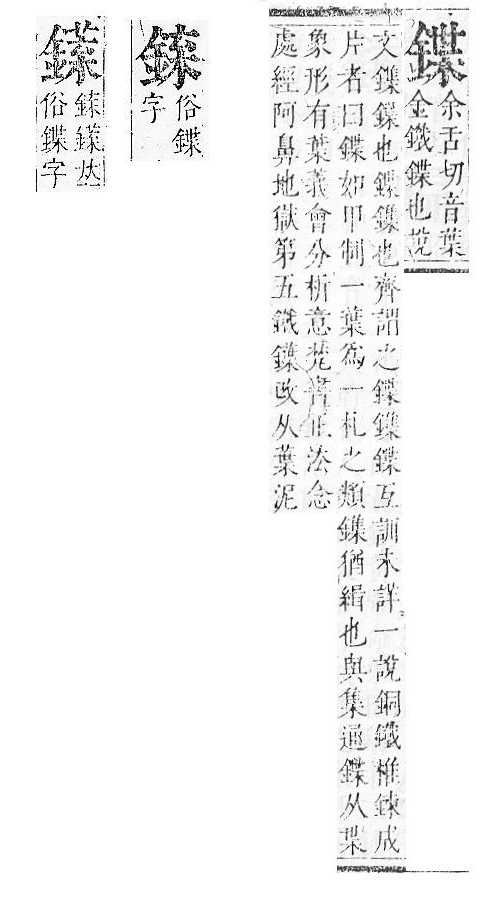 鍱
余舌切音葉
金鐵鍱也說
文鏶鍱也鍱鏶也齊謂之鍱鏶鍱互訓未詳一說銅鐵椎鍊成
片者曰鍱如甲制一葉爲一札之類鏶猶緝也與集通鍱从枼
象形有葉義會分析意梵書正法念
處經阿鼻地獄第五鐵鏶改从葉泥
俗鍱
字
俗鍱字